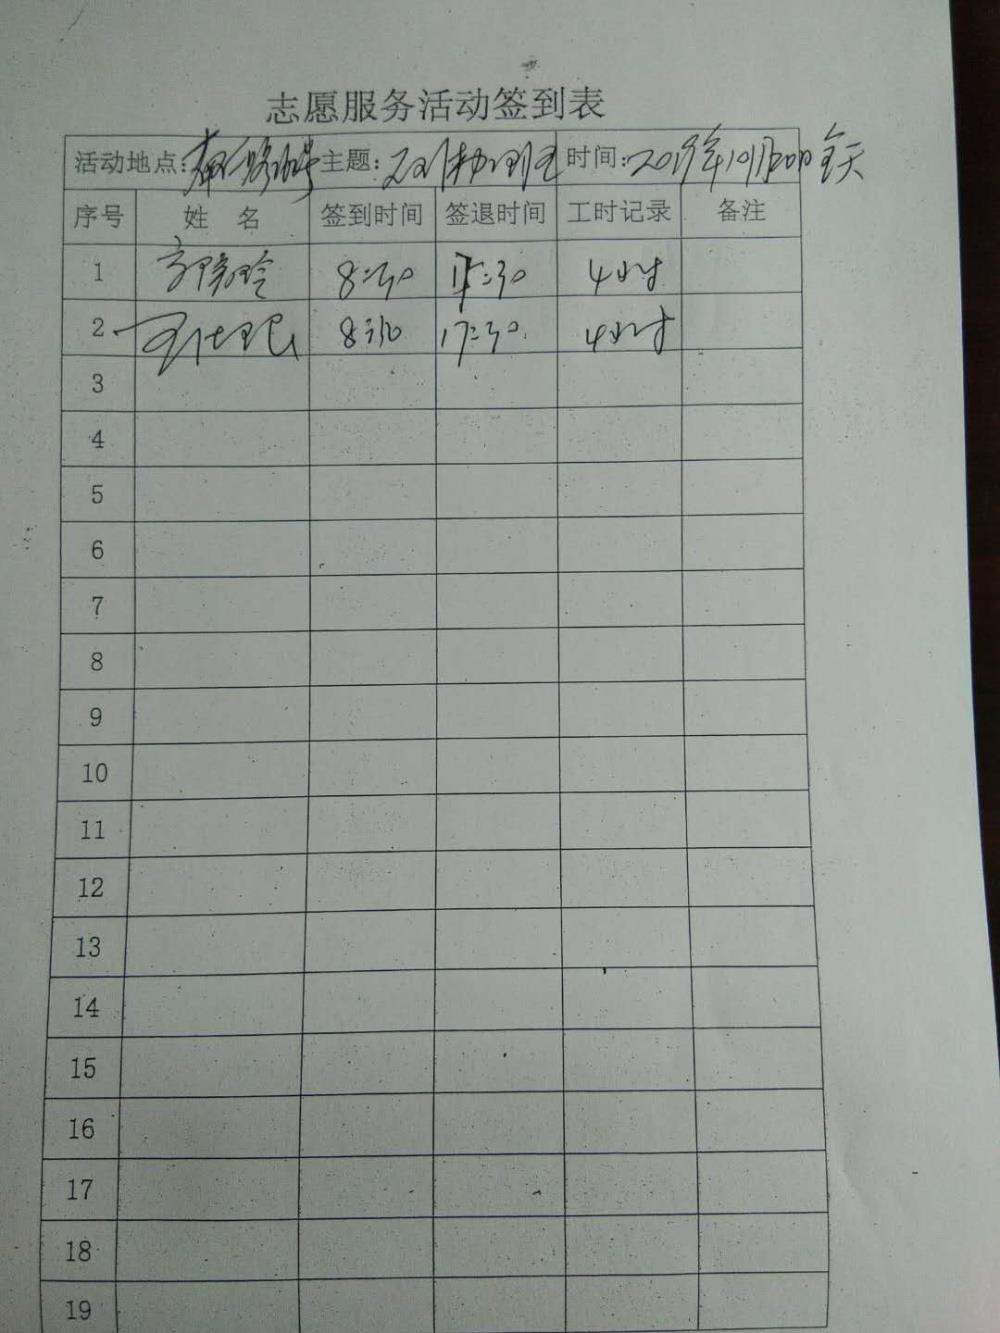 志愿服务活动签到表
活动地点: 主题: 时间:2019年10月 全天
序号 姓 名 签到时间 签退时间 工时记录 备注
1 8:30 17:30 4小时
2 8:30 17:30 4小时
3
4
5
6
7
8
9
10
11
12
13
14
15
16
17
18
19